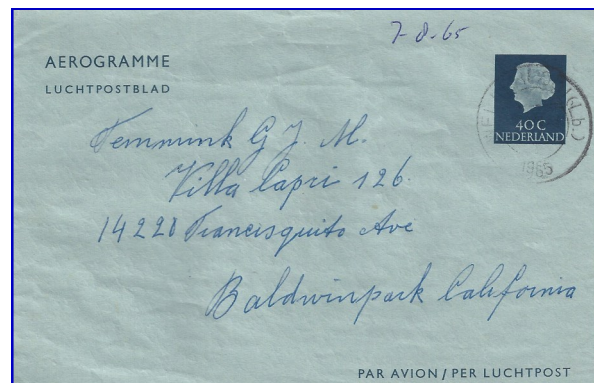 7-8-65
AEROGRAMME
LUCHTPOSTBLAD
40 C
NEDERLAND
1965
Temmink G J. M.
Villa Capri 126.
14220 Francisquito Ave
Baldwinpark California
PAR AVION / PER LUCHTPOST